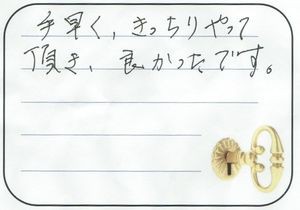 手早く、きっちりやって
頂き、良かったです。